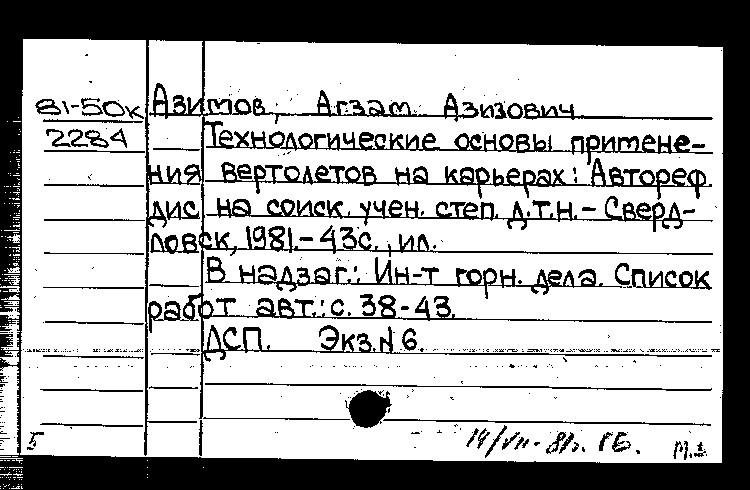 81-50к Азимов, Агзам Азизович
2284 Технологические основы примене-
ния вертолетов на карьерах: Автореф.
дис. на соиск. учен. степ. д.т.н. - Сверд-
ловск, 1981. - 43с., ил.
В надзаг.: Ин-т горн. дела. Список
работ авт.: с. 38-43.
ДСП. Экз. N 6.
5 14/VII-81г.